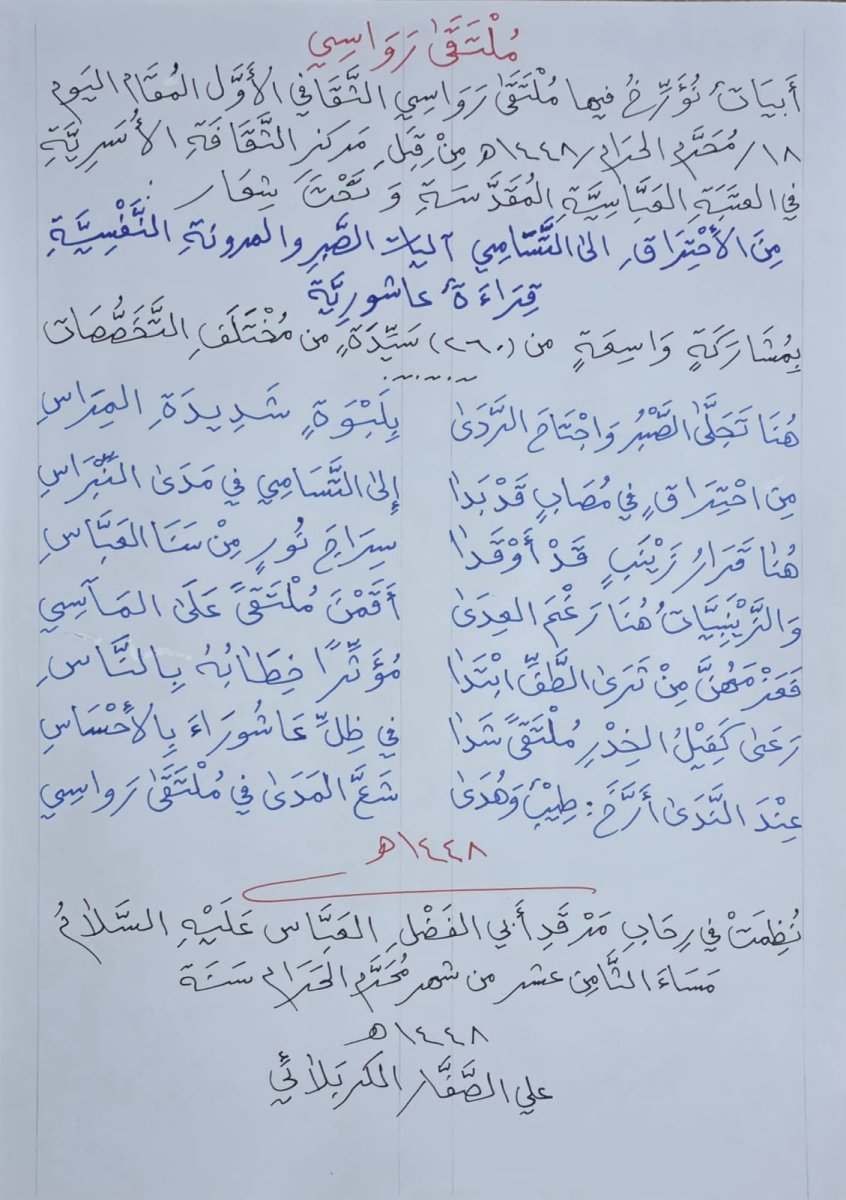 مُلْتَقَىٰ رَوَاسِي
أَبيَاتٌ نُؤَرِّخُ فيها مُلْتَقَىٰ رَوَاسِي الثَّقَافي الأَوَّل المُقَام اليَوم
١٨/ مُحَرَّم الحَرَام/ ١٤٤٨هـ مِنْ قِبَلِ مَركز الثَّقَافَةِ الأُسَرِيَّةِ
في العَتَبَةِ العَبَّاسِيَّةِ المُقَدَّسَةِ وَتَحْتَ شِعَار :
مِنَ الأحْتِرَاقِ الىٰ التَّسَامِي آليات الصَّبرِ والمرونةِ النَّفْسِيَّةِ
قِرَاءَةٌ عاشوريَّة
بِمُشَارَكَةٍ وَاسِعَةٍ من (٢٦٠) سَيِّدَةٍ من مُخْتَلَفِ التَّخَصُّصَات
هُنَا تَجَلَّىٰ الصَّبْرُ وَاجْتَاحَ الرَّدَىٰ بِلَبْوَةٍ شَدِيدَةِ المِرَاسِ
مِنِ احْتِرَاقٍ في مُصَابٍ قَدْ بَدَا إِلىٰ التَّسَامِي في مَدَىٰ النِّبْرَاسِ
هُنَا قَرَارُ زَيْنَبٍ قَدْ أَوْقَدَا سِرَاجَ نُورٍ مِنْ سَنَا العَبَّاسِ
وَالزَّيْنَبِيَّاتُ هُنَا رَغْمَ العِدَىٰ أَقَمْنَ مُلْتَقَىً عَلَىٰ المَآسِي
فَعَزْمَهُنَّ مِنْ ثَرَىٰ الطَّفِّ ابْتَدَا مُؤَثِّرًا خِطَابُهُ بِالنَّاسِ
رَعَىٰ كَفِيْلُ الخِدْرِ مُلْتَقَىً شَدَا في ظِلِّ عَاشُورَاءَ بِالأحْسَاسِ
عِنْدَ النَّدَىٰ أَرَّخَ : طِيْبٌ وَهُدَىٰ شَعَّ المَدَىٰ في مُلْتَقَىٰ رَواسِي
١٤٤٨هـ
نُظِمَتْ في رِحَابِ مَرْقَدِ أَبي الفَضْلِ العَبَّاس عَلَيْهِ السَّلَامُ
مَسَاءَ الثَّامِن عشر من شهر مُحَرَّم الحَرَام سَنَة
١٤٤٨هـ
علي الصَّفَّار الكربَلَائي